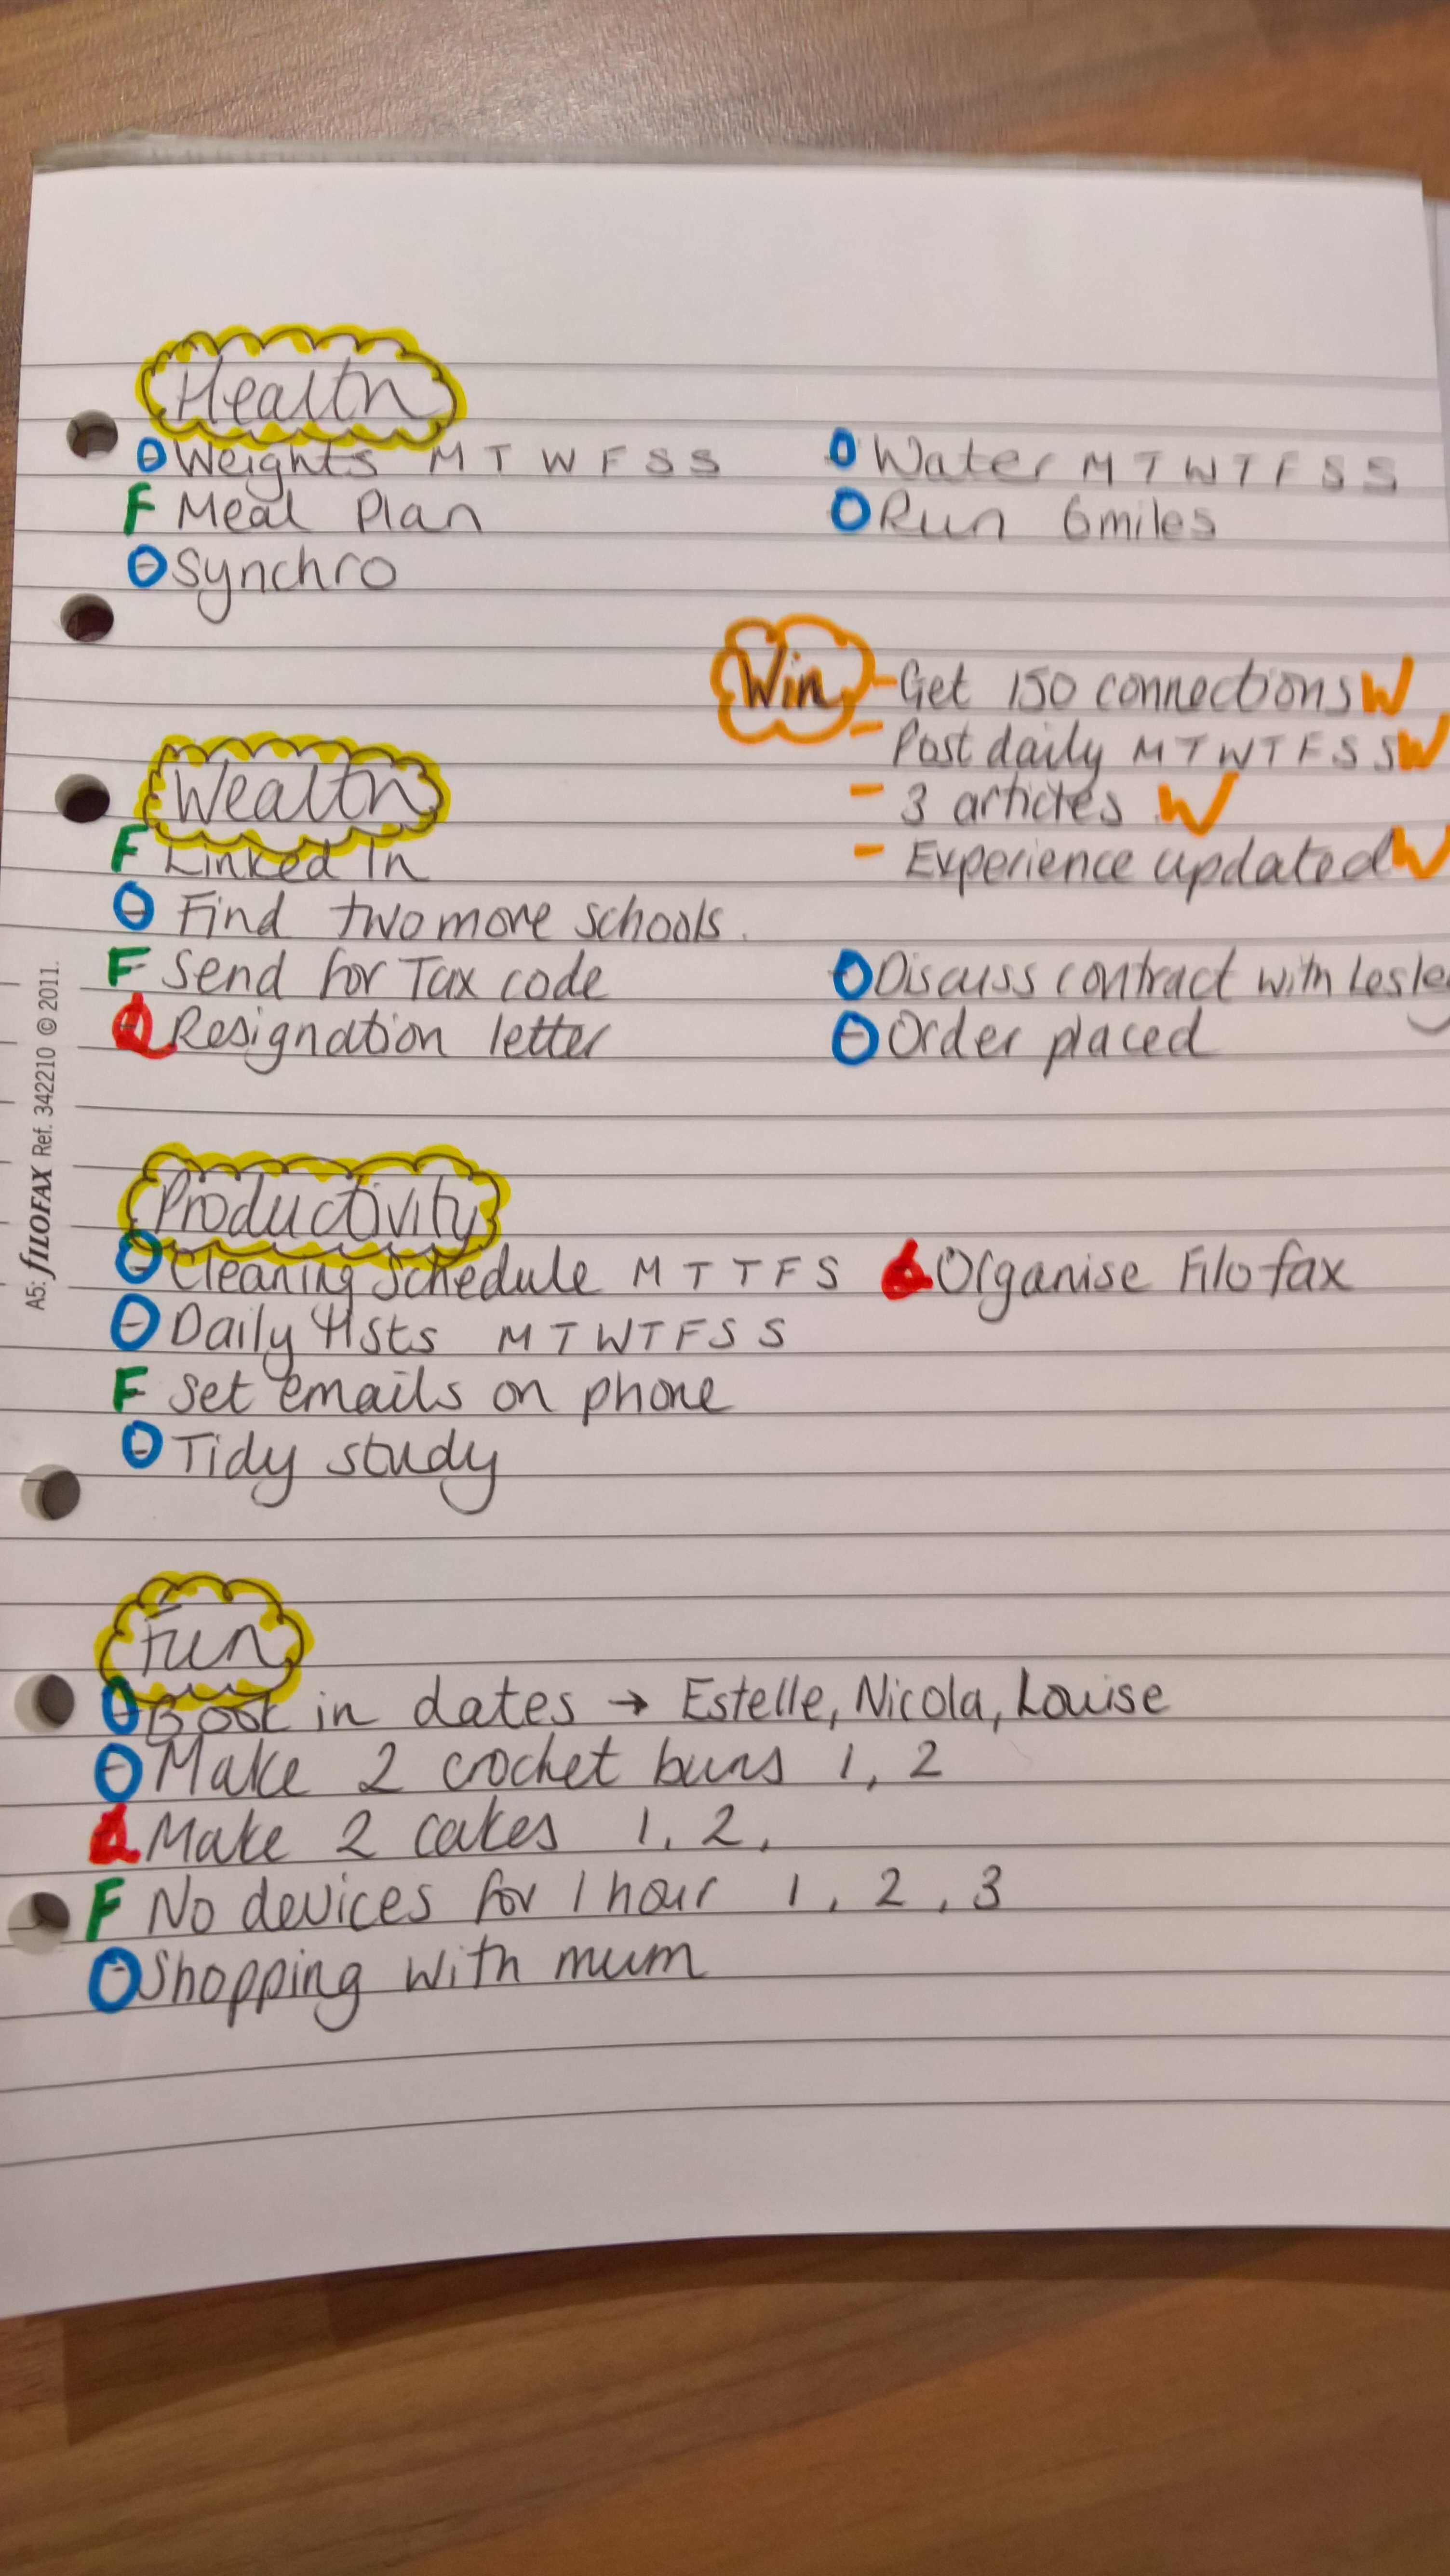 Health
O Weights M T W F S S
O Water M T W T F S S
F Meal Plan
O Run 6miles
O Synchro
Win - Get 150 connections W
- Post daily M T W T F S S W
- 3 articles W
- Experience updated W
Wealth
F Linked In
O Find two more schools.
F Send for Tax code
O Discuss contract with Lesley
Resignation letter
O Order placed
Productivity
O Cleaning Schedule M T T F S
Organise Filofax
O Daily lists M T W T F S S
F Set emails on phone
O Tidy study
Fun
O Book in dates → Estelle, Nicola, Louise
O Make 2 crochet buns 1, 2
Make 2 cakes 1, 2,
F No devices for 1 hour 1, 2, 3
O Shopping with mum
A5: FILOFAX Ref. 342210 © 2011.